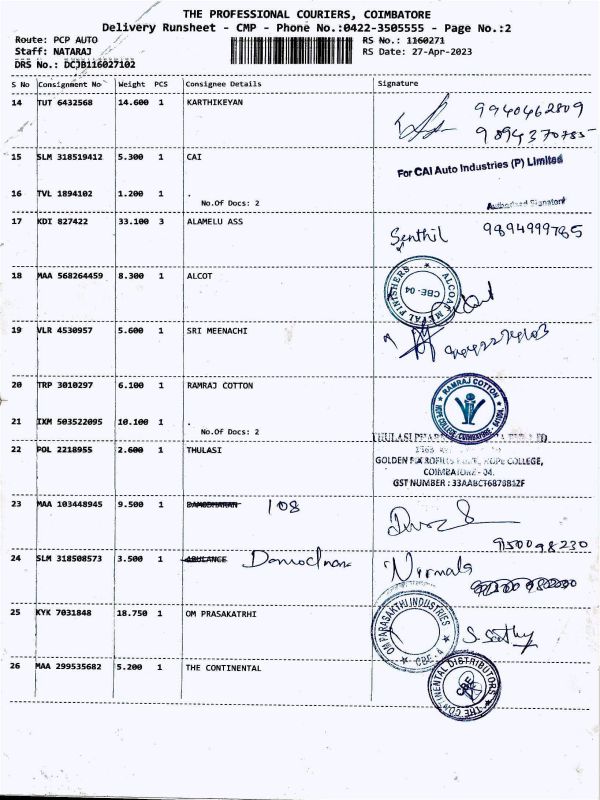 THE PROFESSIONAL COURIERS, COIMBATORE
Delivery Runsheet - CMP - Phone No.:0422-3505555 - Page No.:2
Route: PCP AUTO
RS No.: 1160271
Staff: NATARAJ
RS Date: 27-Apr-2023
DRS No.: DCJB116027102
S No Consignment No Weight PCS Consignee Details Signature
14 TUT 6432568 14.600 1 KARTHIKEYAN
9940462809
9894370785
15 SLM 318519412 5.300 1 CAI
For CAI Auto Industries (P) Limited
16 TVL 1894102 1.200 1 .
No.Of Docs: 2
Authorised Signatory
17 KDI 827422 33.100 3 ALAMELU ASS
Senthil 9894999785
18 MAA 568264459 8.300 1 ALCOT
ALCOAT METAL FINISHERS
CBE-04
19 VLR 4530957 5.600 1 SRI MEENACHI
20 TRP 3010297 6.100 1 RAMRAJ COTTON
RAMRAJ COTTON
HOPE COLLEGE, COIMBATORE
21 IXM 503522095 10.100 1 .
No.Of Docs: 2
22 POL 2218955 2.600 1 THULASI
THULASI
GOLDEN HOPE COLLEGE,
COIMBATORE - 04.
GST NUMBER : 33AABCT6878B1ZF
23 MAA 103448945 9.500 1 DAMODHARAN 108
950098230
24 SLM 318508573 3.500 1 ABULANCE
Nirmala
25 KYK 7031848 18.750 1 OM PRASAKATRHI
OM PARASAKTHI INDUSTRIES
CBE-4
S. Sathy
26 MAA 299535682 5.200 1 THE CONTINENTAL
THE CONTINENTAL DISTRIBUTORS
CBE